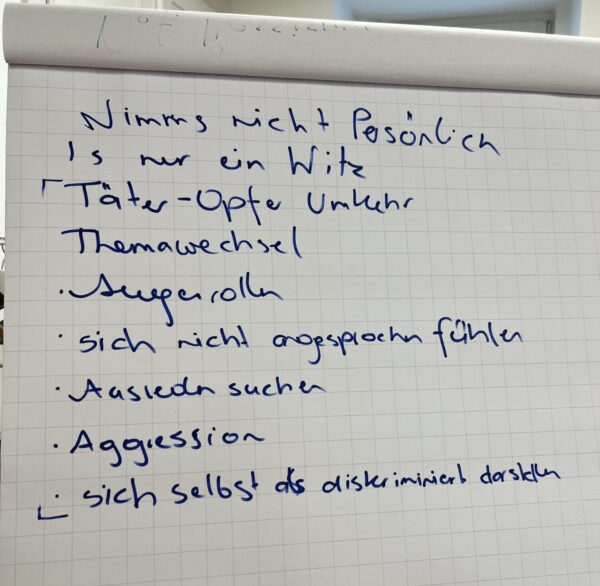 Nimms nicht Persönlich
Is nur ein Witz
Täter-Opfer Umkehr
Themawechsel
· Augenrolln
· sich nicht angesprochn fühlen
· Ausredn suchen
· Aggression
· sich selbst als diskriminiert darstelln